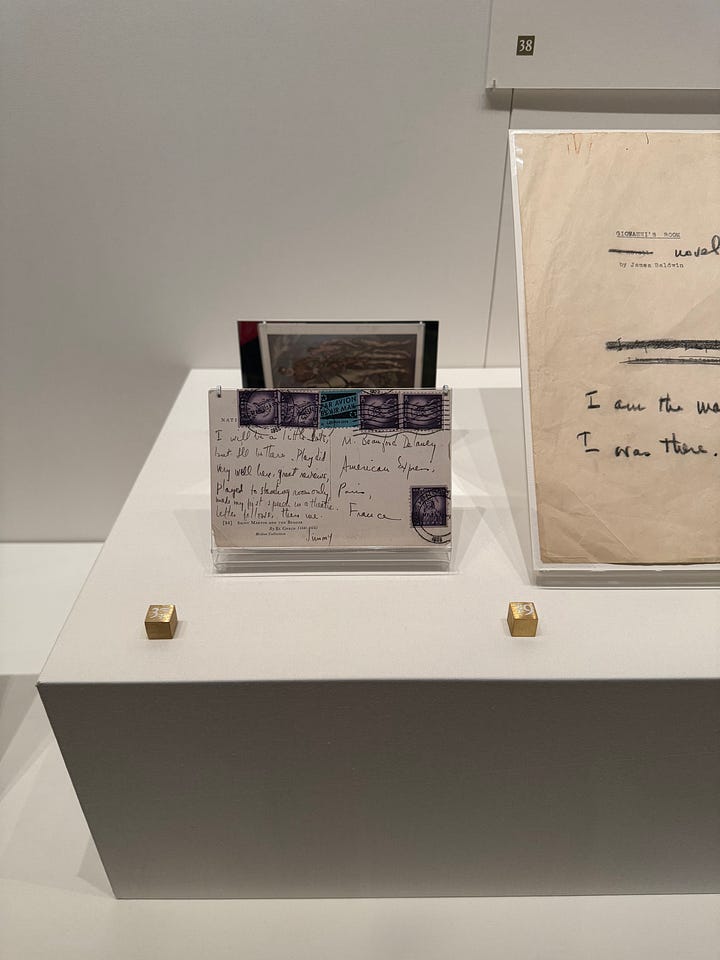 38
GIOVANNI'S ROOM
novel
by James Baldwin
I am the ma
I was there.
NATI
PAR AVION
AIR MAIL
I will be a little late,
but I'll be there. Play did
very well here, great reviews,
played to standing room only,
made my first speech in a theatre.
letter follows, thank me.
[84] SAINT MARTIN AND THE BEGGAR
By EL GRECO (1541-1614)
Mellon Collection
Jimmy
M. Beauford Delaney
American Express,
Paris,
France
39